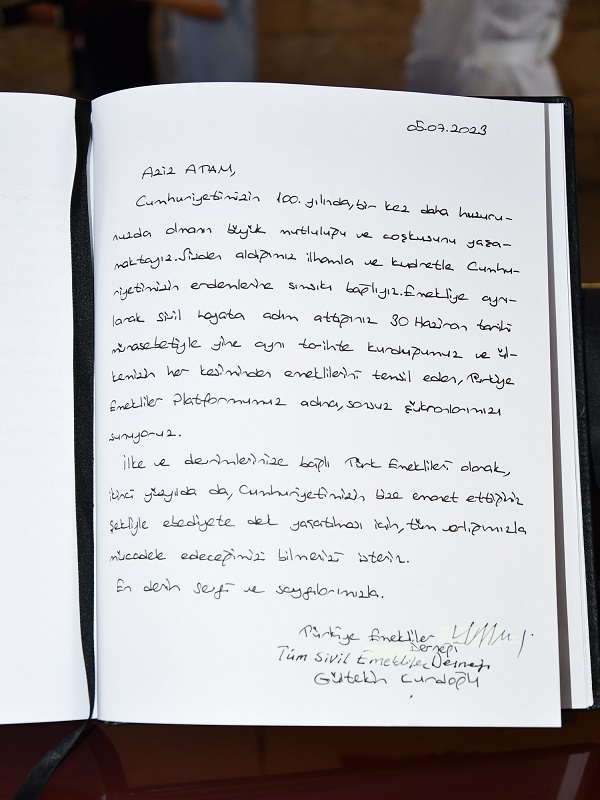 05.07.2023
Aziz ATAM,
Cumhuriyetimizin 100. yılında, bir kez daha huzuru-
nuzda olmanın büyük mutluluğu ve coşkusunu yaşa-
maktayız. Sizden aldığımız ilhamla ve kudretle Cumhu-
riyetimizin erdemlerine sımsıkı bağlıyız. Emekliye ayrı-
larak sivil hayata adım attığınız 30 Haziran tarihi
münasebetiyle yine aynı tarihte kurduğumuz ve ül-
kemizin her kesiminden emeklilerini temsil eden, Türkiye
Emekliler Platformumuz adına, sonsuz şükranlarımızı
sunuyoruz.
İlke ve devrimlerinize bağlı Türk Emeklileri olarak,
ikinci yüzyılda da, Cumhuriyetimizin bize emanet ettiğiniz
şekliyle ebediyete dek yaşatılması için, tüm varlığımızla
mücadele edeceğimizi bilmenizi isteriz.
En derin sevgi ve saygılarımızla.
Türkiye Emekliler
Derneği
Tüm Sivil Emekliler Derneği
Gültekin